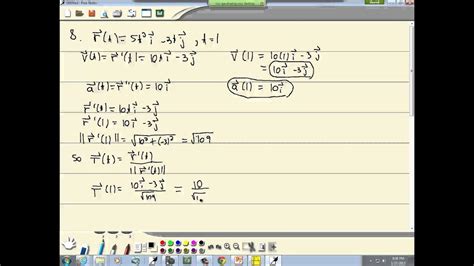 8. r⃗(t) = 5t² i⃗ - 3t j⃗, t=1
v⃗(t) = r⃗'(t) = 10t i⃗ - 3 j⃗
v⃗(1) = 10(1) i⃗ - 3 j⃗
= 10 i⃗ - 3 j⃗
a⃗(t) = r⃗''(t) = 10 i⃗
a⃗(1) = 10 i⃗
r⃗'(t) = 10t i⃗ - 3 j⃗
r⃗'(1) = 10 i⃗ - 3 j⃗
||r⃗'(1)|| = √10²+(-3)² = √109
so T⃗(t) = r⃗'(t) / ||r⃗'(t)||
T⃗(1) = 10 i⃗ - 3 j⃗ / √109 = 10 / √10